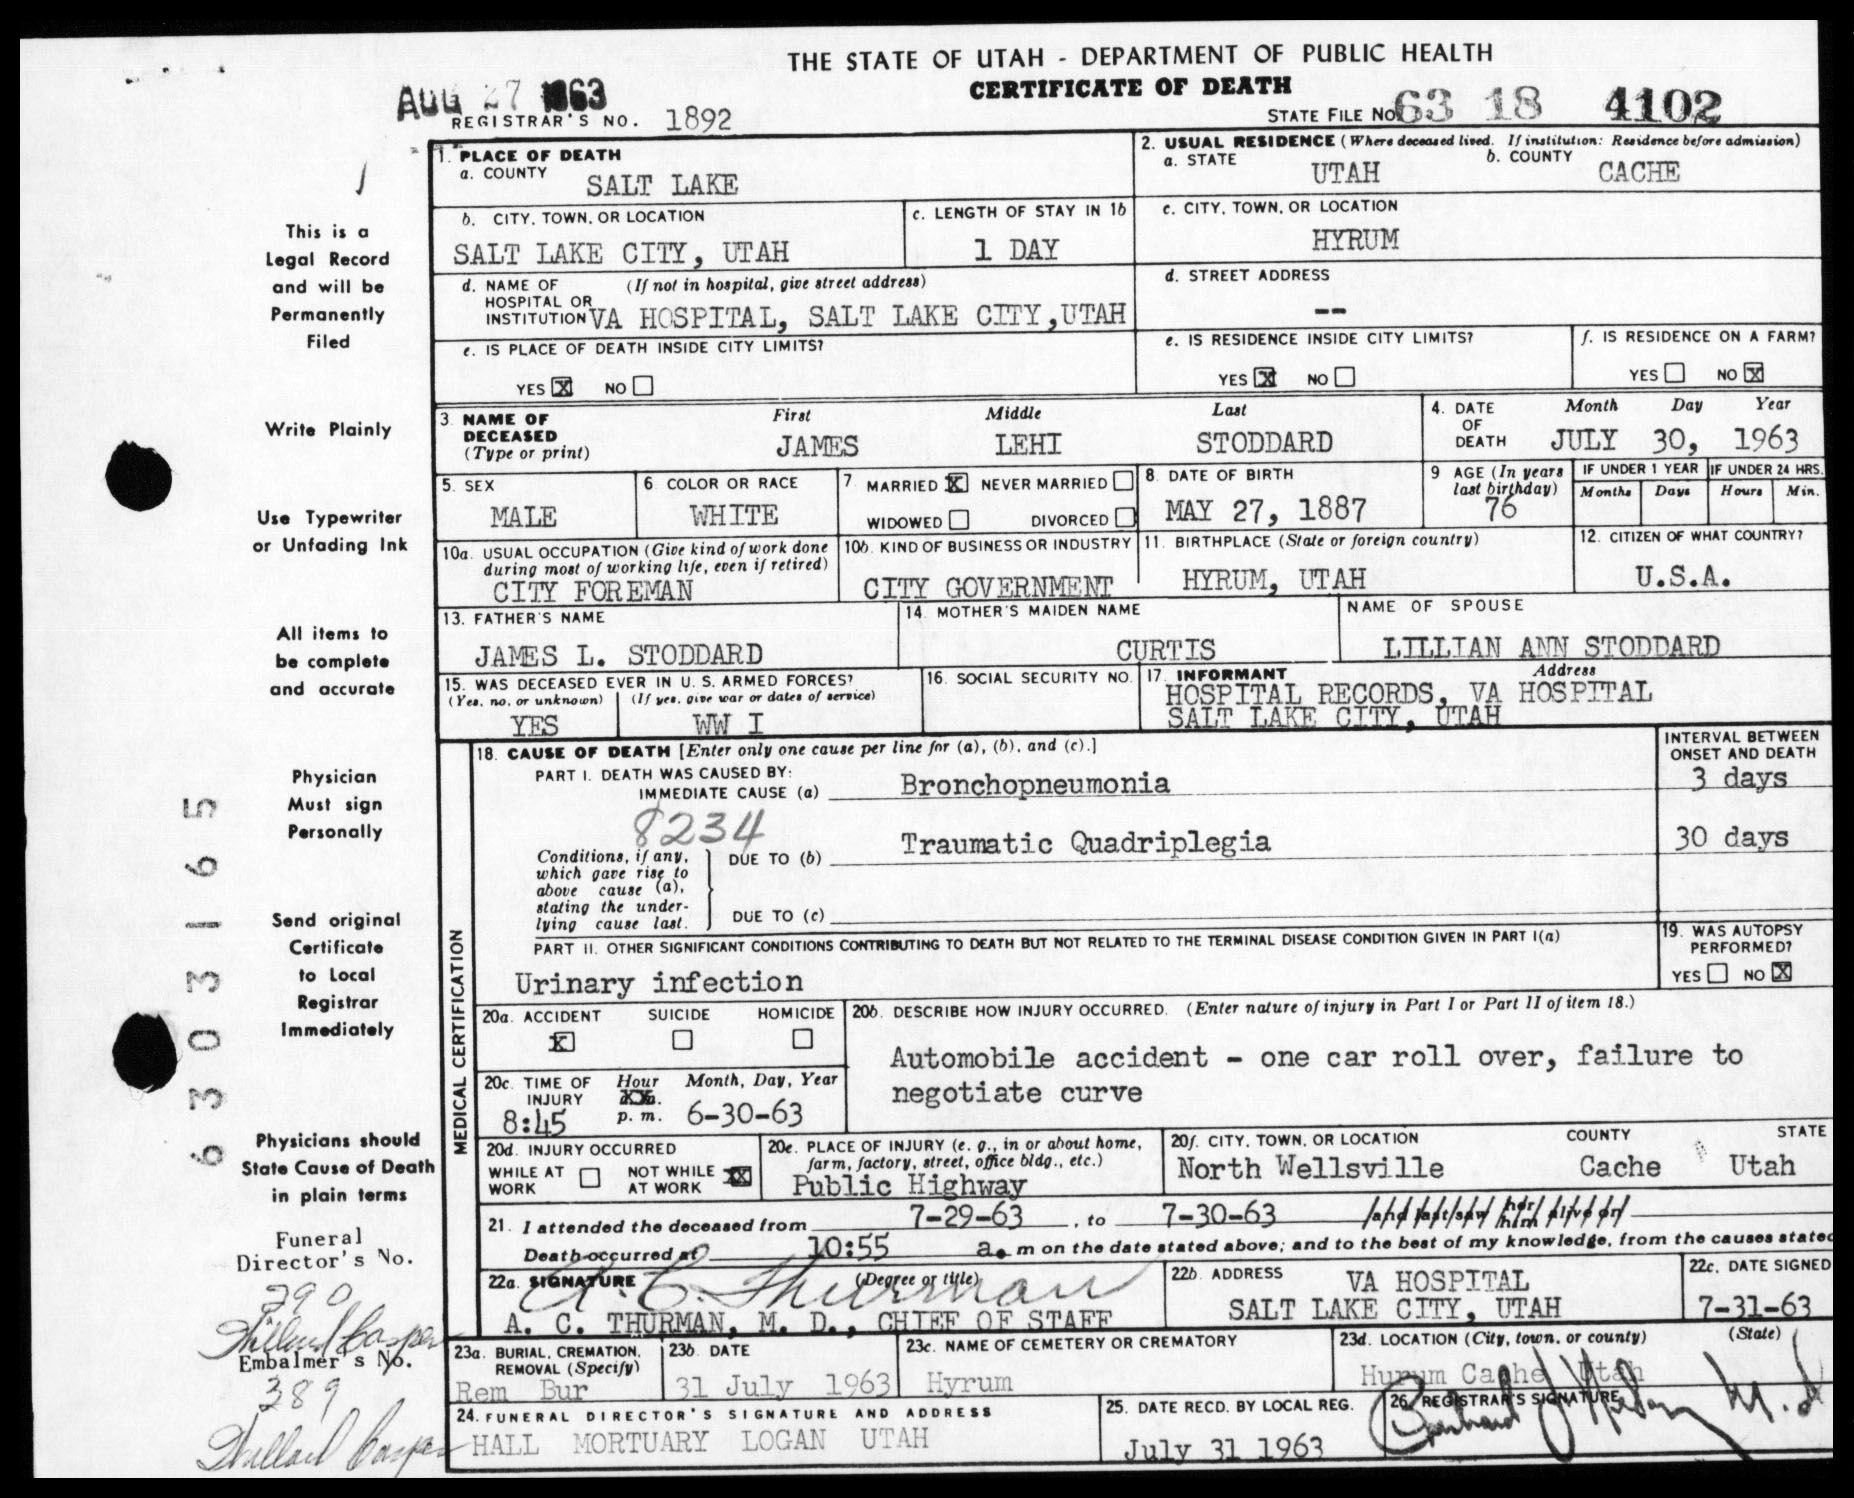 THE STATE OF UTAH - DEPARTMENT OF PUBLIC HEALTH
CERTIFICATE OF DEATH
AUG 27 1963
REGISTRAR'S NO. 1892
STATE FILE NO 63 18 4102
This is a
Legal Record
and will be
Permanently
Filed
Write Plainly
Use Typewriter
or Unfading Ink
All items to
be complete
and accurate
Physician
Must sign
Personally
Send original
Certificate
to Local
Registrar
Immediately
Physicians should
State Cause of Death
in plain terms
Funeral
Director's No.
390
Embalmer's No.
389
6303165
1. PLACE OF DEATH
a. COUNTY SALT LAKE
2. USUAL RESIDENCE (Where deceased lived. If institution: Residence before admission)
a. STATE UTAH b. COUNTY CACHE
b. CITY, TOWN, OR LOCATION
SALT LAKE CITY, UTAH
c. LENGTH OF STAY IN 1b
1 DAY
c. CITY, TOWN, OR LOCATION
HYRUM
d. NAME OF (If not in hospital, give street address)
HOSPITAL OR
INSTITUTION VA HOSPITAL, SALT LAKE CITY,UTAH
d. STREET ADDRESS
--
e. IS PLACE OF DEATH INSIDE CITY LIMITS?
YES X NO
e. IS RESIDENCE INSIDE CITY LIMITS?
YES X NO
f. IS RESIDENCE ON A FARM?
YES NO X
3 NAME OF
DECEASED
(Type or print)
First Middle Last
JAMES LEHI STODDARD
4. DATE
OF
DEATH
Month Day Year
JULY 30, 1963
5. SEX
MALE
6 COLOR OR RACE
WHITE
7 MARRIED X NEVER MARRIED
WIDOWED DIVORCED
8. DATE OF BIRTH
MAY 27, 1887
9 AGE (In years
last birthday)
76
IF UNDER 1 YEAR
Months Days
IF UNDER 24 HRS.
Hours Min.
10a. USUAL OCCUPATION (Give kind of work done
during most of working life, even if retired)
CITY FOREMAN
10b. KIND OF BUSINESS OR INDUSTRY
CITY GOVERNMENT
11. BIRTHPLACE (State or foreign country)
HYRUM, UTAH
12. CITIZEN OF WHAT COUNTRY?
U.S.A.
13. FATHER'S NAME
JAMES L. STODDARD
14. MOTHER'S MAIDEN NAME
CURTIS
NAME OF SPOUSE
LILLIAN ANN STODDARD
15. WAS DECEASED EVER IN U. S. ARMED FORCES?
(Yes, no, or unknown) (If yes, give war or dates of service)
YES WW I
16. SOCIAL SECURITY NO.
17. INFORMANT Address
HOSPITAL RECORDS, VA HOSPITAL
SALT LAKE CITY, UTAH
MEDICAL CERTIFICATION
18. CAUSE OF DEATH [Enter only one cause per line for (a), (b), and (c).]
INTERVAL BETWEEN
ONSET AND DEATH
PART I. DEATH WAS CAUSED BY:
IMMEDIATE CAUSE (a) Bronchopneumonia 3 days
8234
Conditions, if any,
which gave rise to
above cause (a),
stating the under-
lying cause last.
DUE TO (b) Traumatic Quadriplegia 30 days
DUE TO (c)
PART II. OTHER SIGNIFICANT CONDITIONS CONTRIBUTING TO DEATH BUT NOT RELATED TO THE TERMINAL DISEASE CONDITION GIVEN IN PART I(a)
Urinary infection
19. WAS AUTOPSY
PERFORMED?
YES NO X
20a. ACCIDENT SUICIDE HOMICIDE
X
20b. DESCRIBE HOW INJURY OCCURRED. (Enter nature of injury in Part I or Part II of item 18.)
Automobile accident - one car roll over, failure to
negotiate curve
20c. TIME OF
INJURY
Hour Month, Day, Year
8:45 p. m. 6-30-63
20d. INJURY OCCURRED
WHILE AT
WORK
NOT WHILE
AT WORK X
20e. PLACE OF INJURY (e. g., in or about home,
farm, factory, street, office bldg., etc.)
Public Highway
20f. CITY, TOWN, OR LOCATION COUNTY STATE
North Wellsville Cache Utah
21. I attended the deceased from 7-29-63, to 7-30-63 and last saw her him alive on
Death occurred at 10:55 a. m on the date stated above; and to the best of my knowledge, from the causes stated
22a. SIGNATURE (Degree or title)
A. C. Thurman
A. C. THURMAN, M. D., CHIEF OF STAFF
22b. ADDRESS VA HOSPITAL
SALT LAKE CITY, UTAH
22c. DATE SIGNED
7-31-63
23a. BURIAL, CREMATION,
REMOVAL (Specify)
Rem Bur
23b. DATE
31 July 1963
23c. NAME OF CEMETERY OR CREMATORY
Hyrum
23d. LOCATION (City, town, or county) (State)
Hurum Cache Utah
24. FUNERAL DIRECTOR'S SIGNATURE AND ADDRESS
HALL MORTUARY LOGAN UTAH
25. DATE RECD. BY LOCAL REG.
July 31 1963
26. REGISTRAR'S SIGNATURE